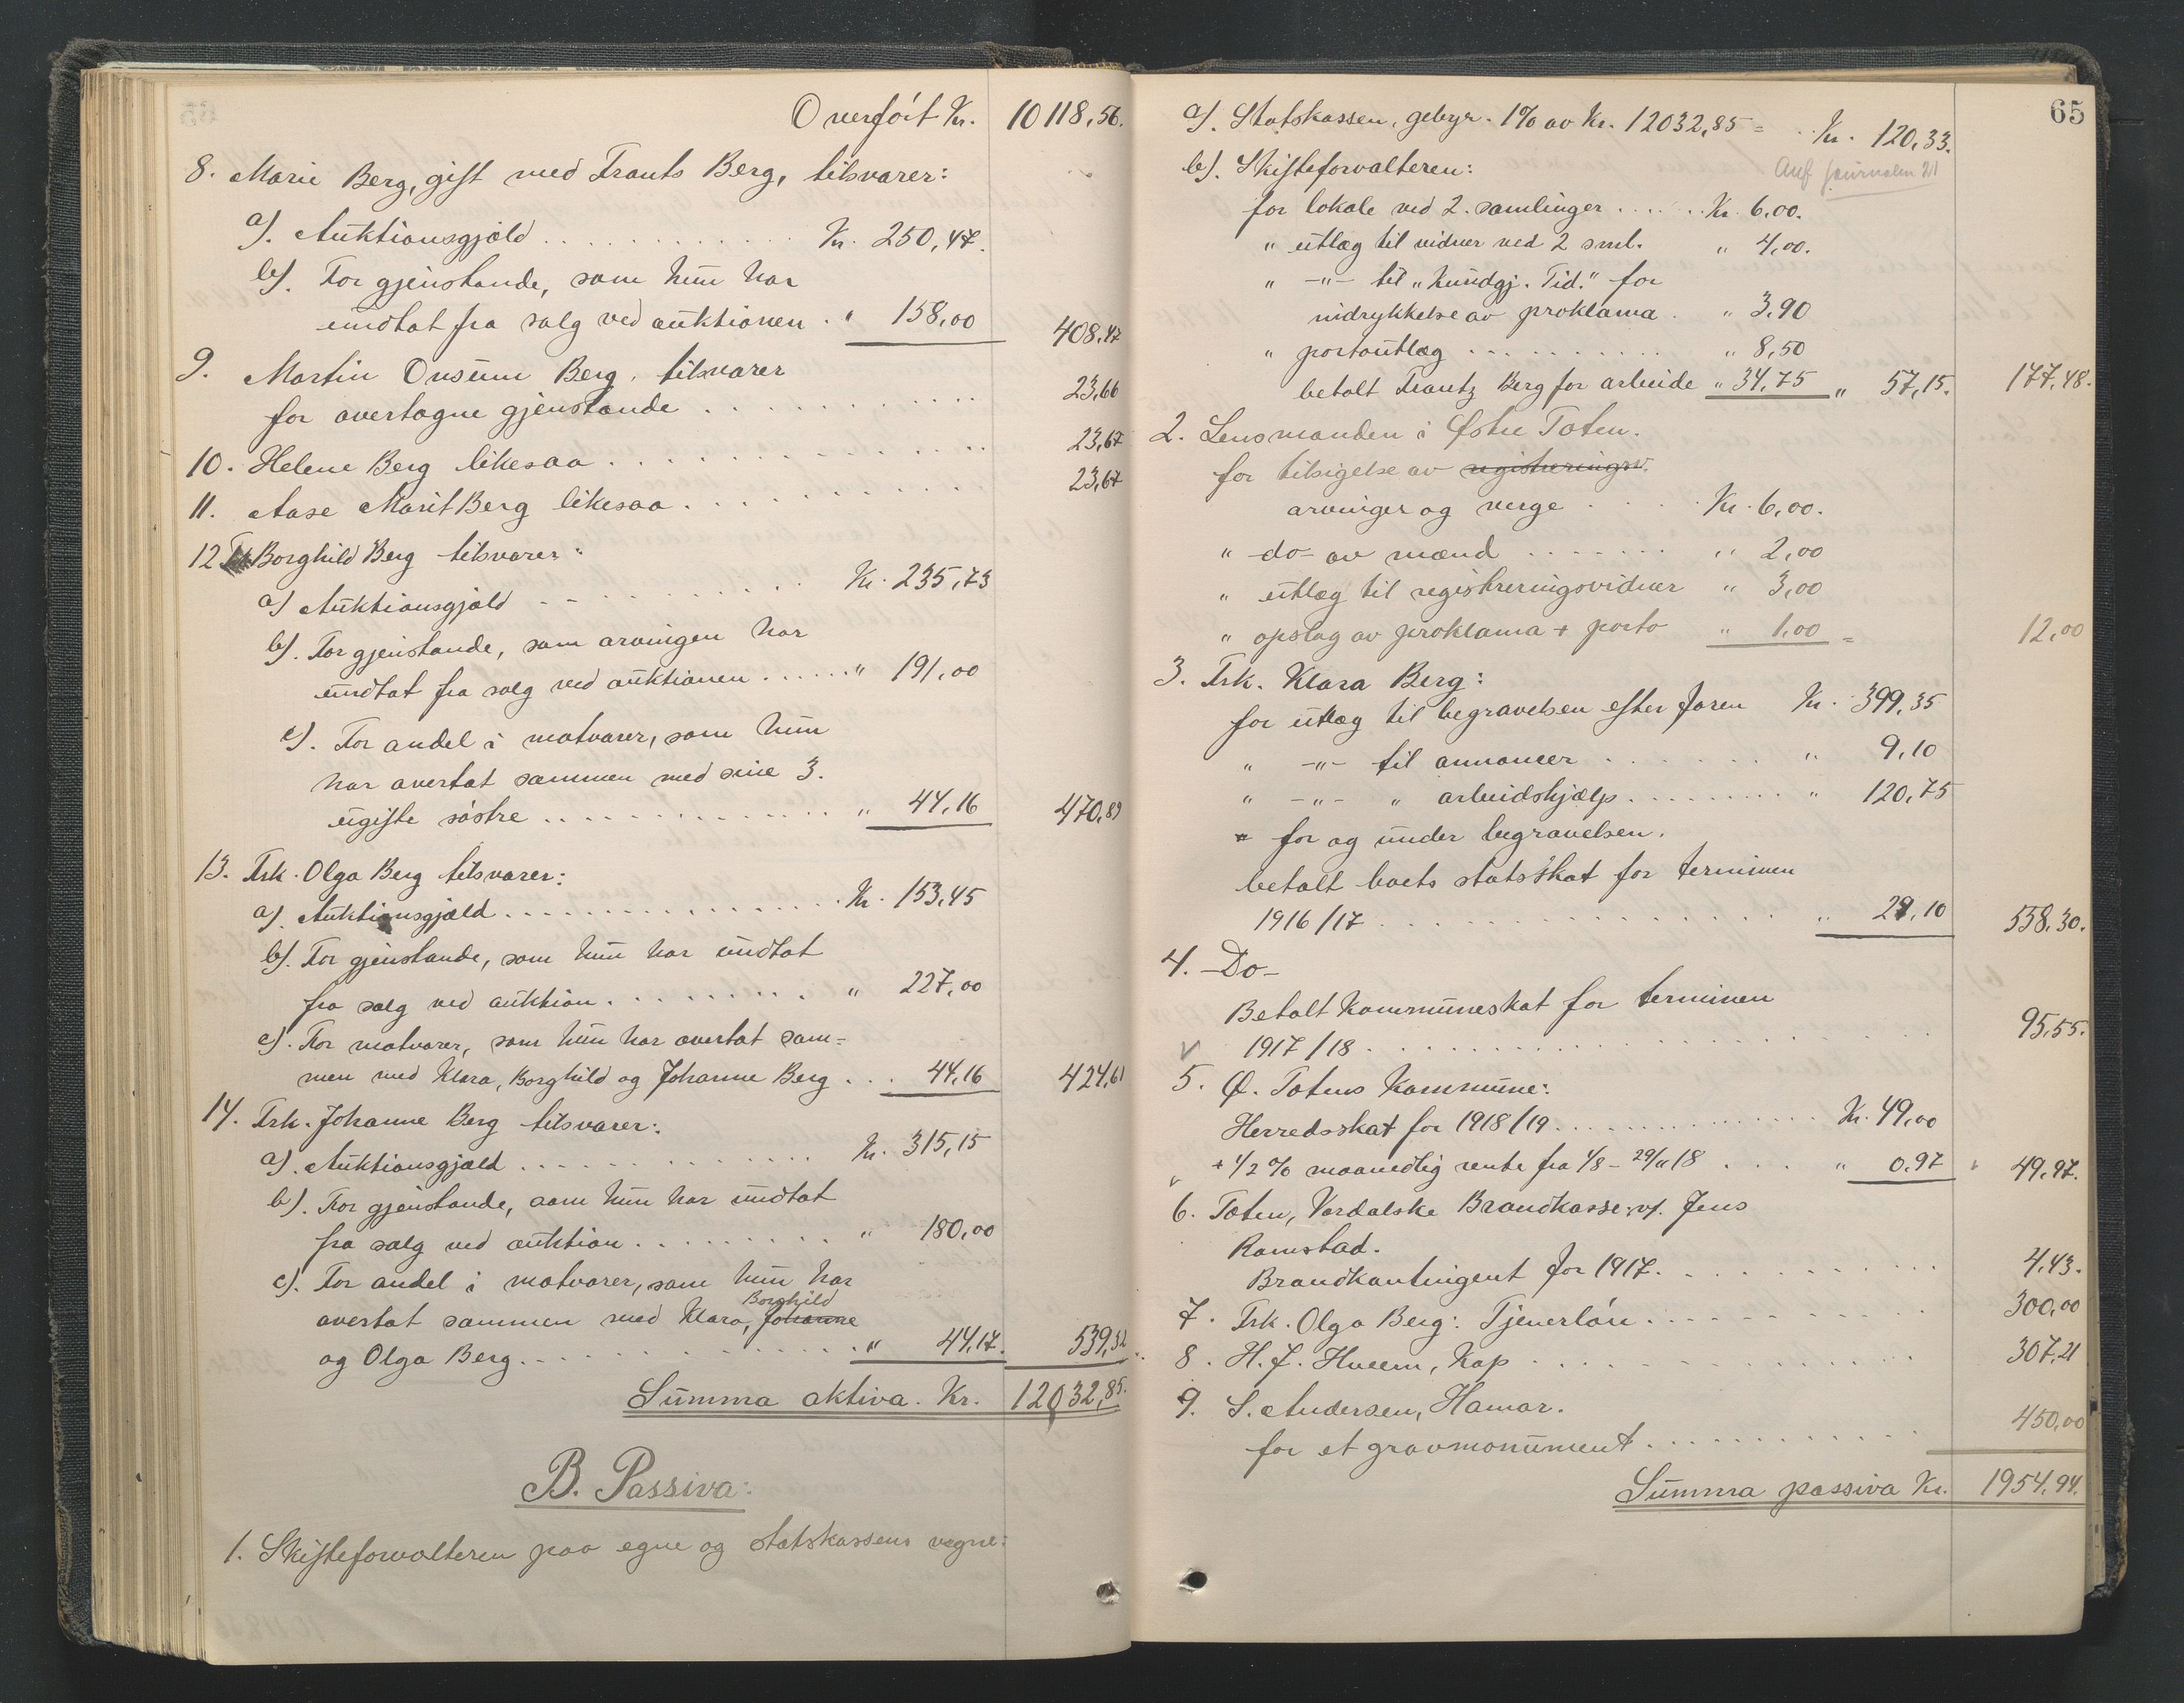 Overført Kr. 10118,56.
8. Marie Berg, gift med Frants Berg, tilsvarer:
a). Auktionsgjæld ............ Kr. 250,47.
b). For gjenstande, som hun har
undtat fra salg ved auktionen . " 158,00 408,47
9. Martin Onsum Berg, tilsvarer
for overtagne gjenstande ............ 23,66
10. Helene Berg likesaa ............ 23,67
11. Aase Marit Berg likesaa ............ 23,67
12 Frk Borghild Berg tilsvarer:
a) Auktionsgjæld - - ....... Kr. 235,73
b). For gjenstande, som arvingen har
undtat fra salg ved auktionen ...... " 191,00
c). For andel i matvarer, som hun
har overtat sammen med sine 3.
ugifte søstre .............. " 44,16 470,89
13. Frk. Olga Berg tilsvarer:
a). Auktionsgjæld ................ Kr. 153,45
b). For gjenstande, som hun har undtat
fra salg ved auktion .......... " 227,00
c). For matvarer, som hun har overtat sam=
men med Klara, Borghild og Johanne Berg ... 44,16 424,61
14. Frk. Johanne Berg tilsvarer:
a). Auktionsgjæld .............. Kr. 315,15
b). For gjenstande, som hun har undtat
fra salg ved auktion ......... " 180,00
c). For andel i matvarer, som hun har
Borghild
overtat sammen med Klara, Johanne
og Olga Berg ............... " 44,17. 539,32
Summa aktiva. Kr. 12032,85.
B. Passiva:
1. Skifteforvalteren paa egne og statskassens vegne:
65
a). Statskassen, gebyr. 1% av Kr. 12032,85 = .. Kr. 120,33.
journalen 21
b). Skifteforvalteren:
for lokale ved 2. samlinger ...... Kr. 6,00.
" utlæg til vidner ved 2 sml. " 4,00.
" -"- til "Kundgj. Tid." for
indrykkelse av proklama . " 3,90
" portoutlæg .......... " 8,50
betalt Frantz Berg for arbeide " 34,75 " 57,15. 177,48.
2. Lensmanden i Østre Toten.
for tilsigelse av registreringsv.
arvinger og verge .... Kr. 6,00.
" -do- av mænd ....... " 2,00
" utlæg til registreringsvidner " 3,00
" opslag av proklama + porto " 1,00 = 12,00
3. Frk. Klara Berg:
for utlæg til begravelsen efter faren Kr. 399,35
" -"- til annoncer ........ " 9,10
" -"- " arbeidshjælp ......... " 120,75
" for og under begravelsen.
betalt boets statsskat for terminen
1916/17 ............... " 29,10 558,30.
4. -Do-
Betalt Kommuneskat for terminen
1917/18 ............... 95,55.
5. Ø. Totens Kommune:
Herredsskat for 1918/19 ............ Kr. 49,00
+ 1/2 % maanedlig rente fra 1/8 - 29/11 18 .... " 0,97 49,97.
6. Toten, Vardalske Brandkasse v/. Jens
Ramstad.
Brandkontingent for 1917 ............ 4,43.
7. Frk. Olga Berg: Tjenerløn ......... 300,00
8. H. J. Hveem, Kap ............ 307,21
9. S. Andersen, Hamar.
for et gravmonument ............ 450,00
Summa passiva Kr. 1954,94.